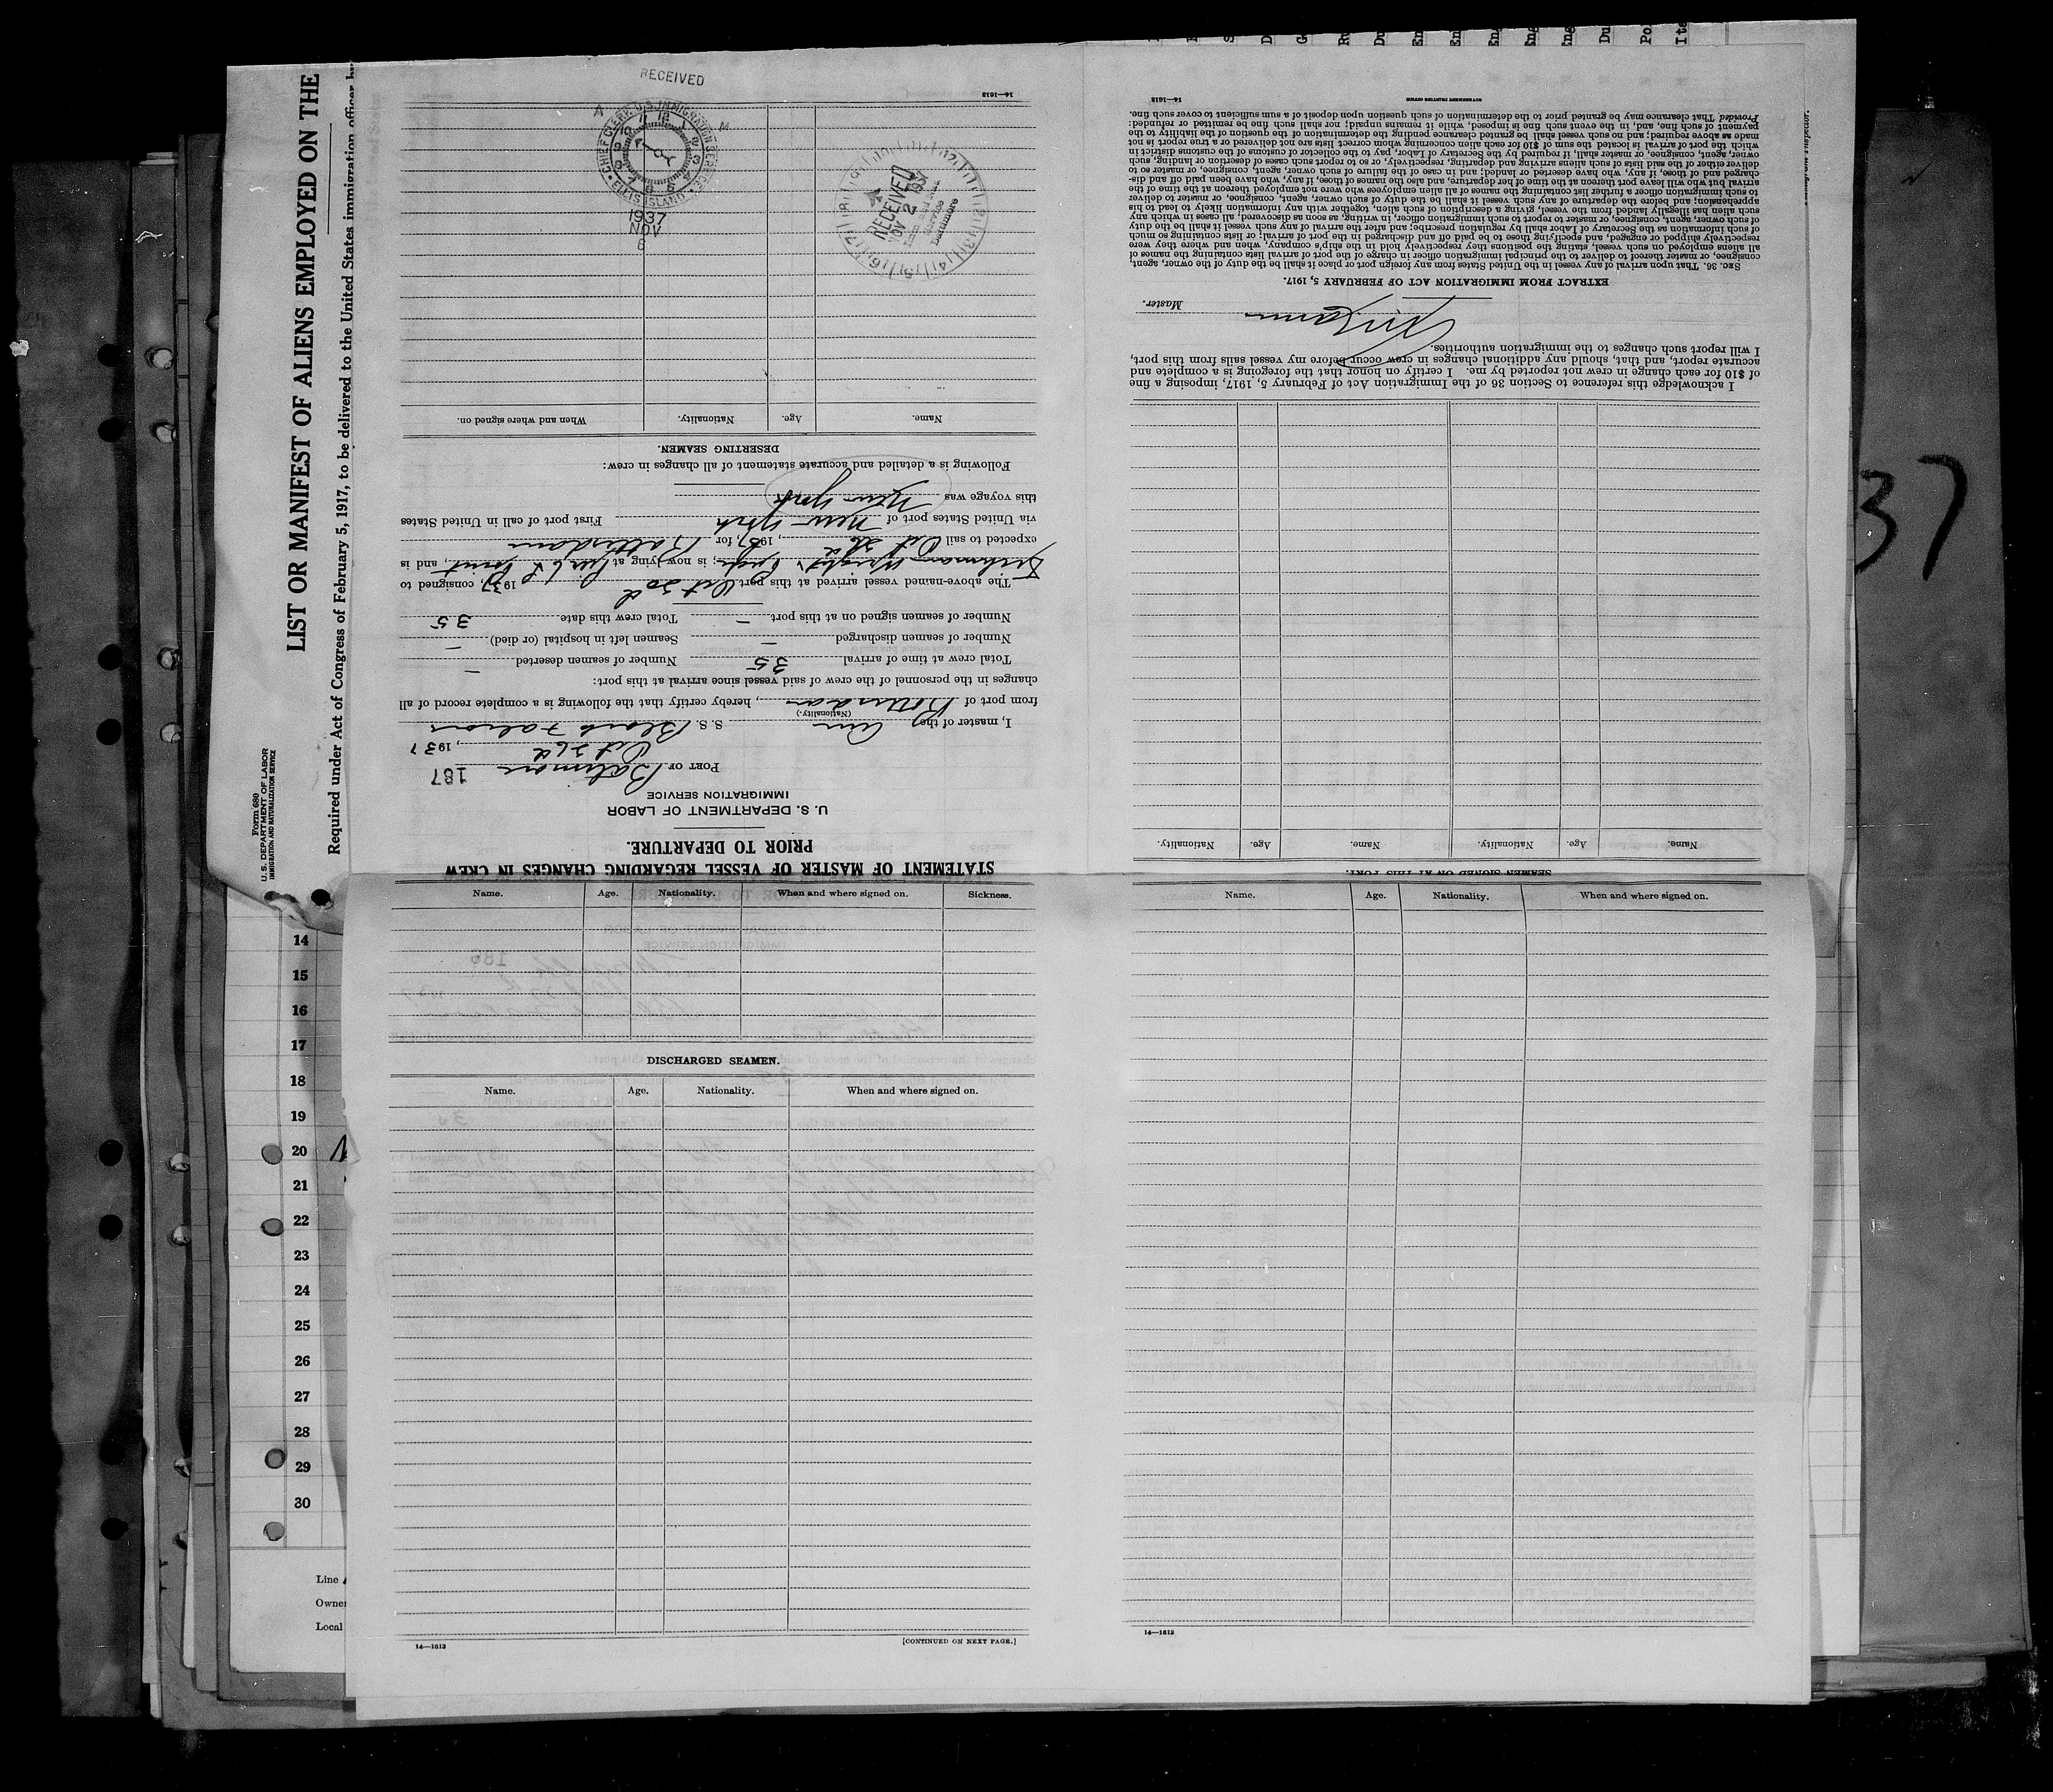 Form 680
U. S. DEPARTMENT OF LABOR
IMMIGRATION AND NATURALIZATION SERVICE
LIST OR MANIFEST OF ALIENS EMPLOYED ON THE
Required under Act of Congress of February 5, 1917, to be delivered to the United States immigration officer by
STATEMENT OF MASTER OF VESSEL REGARDING CHANGES IN CREW
PRIOR TO DEPARTURE.
U. S. DEPARTMENT OF LABOR
IMMIGRATION SERVICE
187
PORT OF Baltimore
Oct 26th, 1937
I, master of the Am S. S. Black Falcon
(Nationality.)
from port of, hereby certify that the following is a complete record of all
changes in the personnel of the crew of said vessel since arrival at this port:
Total crew at time of arrival 35 Number of seamen deserted —
Number of seamen discharged — Seamen left in hospital (or died) —
Number of seamen signed on at this port — Total crew this date 35
The above-named vessel arrived at this port Oct 20, 1937, consigned to
; is now lying at, and is
expected to sail Oct 26, 1937, for Rotterdam
via United States port of New York First port of call in United States
this voyage was New York
Following is a detailed and accurate statement of all changes in crew:
DESERTING SEAMEN.
Name. Age. Nationality. When and where signed on.
14—1613
RECEIVED
A M
CHIEF CLERK, U.S. IMMIGRATION SERVICE
ELLIS ISLAND
1937
NOV
8
RECEIVED
NOV 2 1937
Baltimore
SEAMEN SIGNED ON AT THIS PORT.
Name. Age. Nationality. Name. Age. Nationality.
I acknowledge this reference to Section 36 of the Immigration Act of February 5, 1917, imposing a fine
of $10 for each change in crew not reported by me. I certify on honor that the foregoing is a complete and
accurate report, and that, should any additional changes in crew occur before my vessel sails from this port,
I will report such changes to the immigration authorities.
Master.
EXTRACT FROM IMMIGRATION ACT OF FEBRUARY 5, 1917.
SEC. 36. That upon arrival of any vessel in the United States from any foreign port or place it shall be the duty of the owner, agent,
consignee, or master thereof to deliver to the principal immigration officer in charge of the port of arrival lists containing the names of
all aliens employed on such vessel, stating the positions they respectively hold in the ship's company, when and where they were
respectively shipped or engaged, and specifying those to be paid off and discharged in the port of arrival; or lists containing so much
of such information as the Secretary of Labor shall by regulation prescribe; and after the arrival of any such vessel it shall be the duty
of such owner, agent, consignee, or master to report to such immigration officer, in writing, as soon as discovered, all cases in which any
such alien has illegally landed from the vessel, giving a description of such alien, together with any information likely to lead to his
apprehension; and before the departure of any such vessel it shall be the duty of such owner, agent, consignee, or master to deliver
to such immigration officer a further list containing the names of all alien employees who were not employed thereon at the time of the
arrival but who will leave port thereon at the time of her departure, and also the names of those, if any, who have been paid off and dis-
charged and of those, if any, who have deserted or landed; and in case of the failure of such owner, agent, consignee, or master so to
deliver either of the said lists of such aliens arriving and departing, respectively, or so to report such cases of desertion or landing, such
owner, agent, consignee, or master shall, if required by the Secretary of Labor, pay to the collector of customs of the customs district in
which the port of arrival is located the sum of $10 for each alien concerning whom correct lists are not delivered or a true report is not
made as above required; and no such vessel shall be granted clearance pending the determination of the question of the liability to the
payment of such fine, and, in the event such fine is imposed, while it remains unpaid; nor shall such fine be remitted or refunded:
Provided That clearance may be granted prior to the determination of such question upon deposit of a sum sufficient to cover such fine.
GOVERNMENT PRINTING OFFICE
14—1613
Name. Age. Nationality. When and where signed on. Sickness.
DISCHARGED SEAMEN.
Name. Age. Nationality. When and where signed on.
14—1613
[CONTINUED ON NEXT PAGE.]
Name. Age. Nationality. When and where signed on.
14—1613
14
15
16
17
18
19
20
21
22
23
24
25
26
27
28
29
30
Line
Owner
Local
37